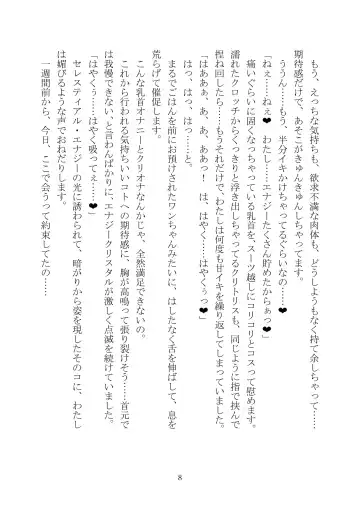 もう、えっちな気持ちも、欲求不満な肉体も、どうしようもなく持て余しちゃって……
期待感だけで、あそこがきゅんきゅんしちゃってます。
「ううん……もう、半分イキかけちゃってるぐらいなの……❤
「ねぇ……ねぇ❤　わたし……エナジーたくさん貯めたからぁっ❤」
痛いぐらいに固くなっちゃっている乳首を、スーツ越しにコリコリとコスって慰めます。
濡れたクロッチからくっきりと浮き出しちゃってるクリトリスも、同じように指で挟んで
捏ね回したら……もうそれだけで、わたしは何度も甘イキを繰り返してしまっていました。
「はああぁ、あ、あ、ああっ！　は、はやく……はやくぅっ❤」
はっ、はっ、はっ……と。
まるでごはんを前にお預けされたワンちゃんみたいに、はしたなく舌を伸ばして、息を
荒らげて催促します。
こんな乳首オナニーとクリオナなんかじゃ、全然満足できないの。
これから行われる気持ちいいコトへの期待感に、胸が高鳴って張り裂けそう……首元で
は我慢できないっと言わんばかりに、エナジークリスタルが激しく点滅を続けてました。
「はやくぅ……はやく吸ってぇ……❤」
セレスティアル・エナジーの光に誘われて、暗がりから姿を現したそのコに、わたし
は媚びるような声でおねだりします。
一週間前から、今日、ここで会うって約束してたの……
8